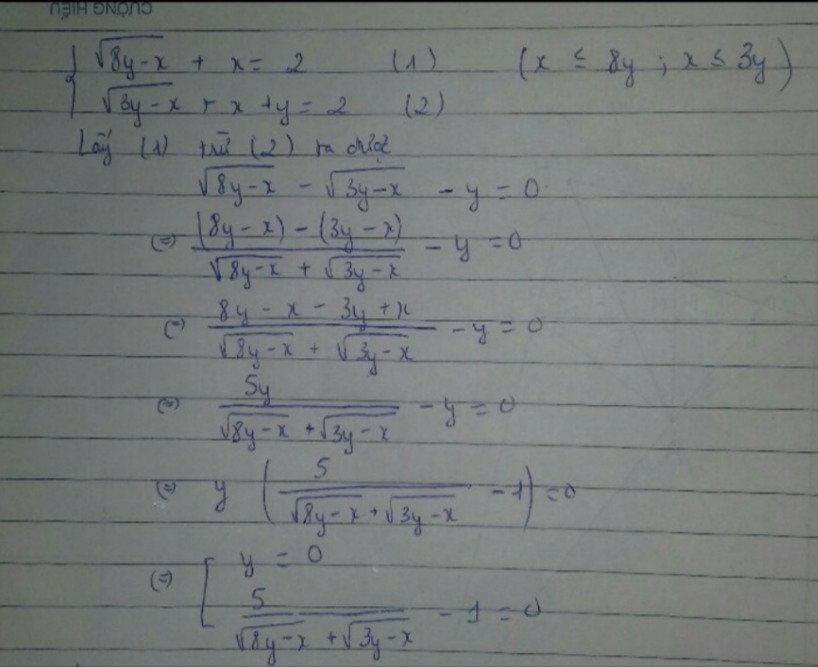 CƯỜNG HIẾU
{ √(8y-x) + x = 2 (1) (x ≤ 8y ; x ≤ 3y)
√(3y-x) + x + y = 2 (2)
Lấy (1) trừ (2) ta được
√(8y-x) - √(3y-x) - y = 0
(=) ((8y - x) - (3y - x))/(√(8y-x) + √(3y-x)) - y = 0
(=) (8y - x - 3y + x)/(√(8y-x) + √(3y-x)) - y = 0
(=) 5y/(√(8y-x) + √(3y-x)) - y = 0
(=) y (5/(√(8y-x) + √(3y-x)) - 1) = 0
(=) [ y = 0
5/(√(8y-x) + √(3y-x)) - 1 = 0